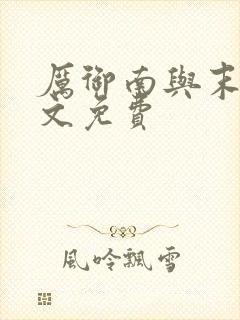 厲御南與末
文免費
風吟飄雪